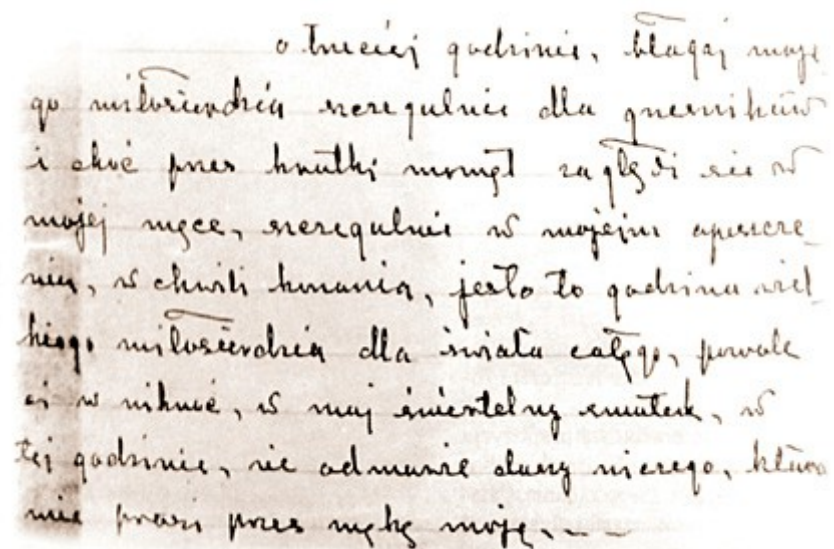 o trzeciej godzinie, błagaj moje
go miłosierdzia szczegulnie dla grzeszników
i choć przez krutki momęt zagłębi się w
mojej męce, szczegulnie w mojejm opuszcze
niu, w chwili konania, jesto to godzina wiel
kiego miłosierdzia dla świata całego, pozwole
ci w niknić, w moj śmiertelny smutek, w
tej godzinie, nie odmówie duszy niczego, która
mie prosi przez mękę moję, ---